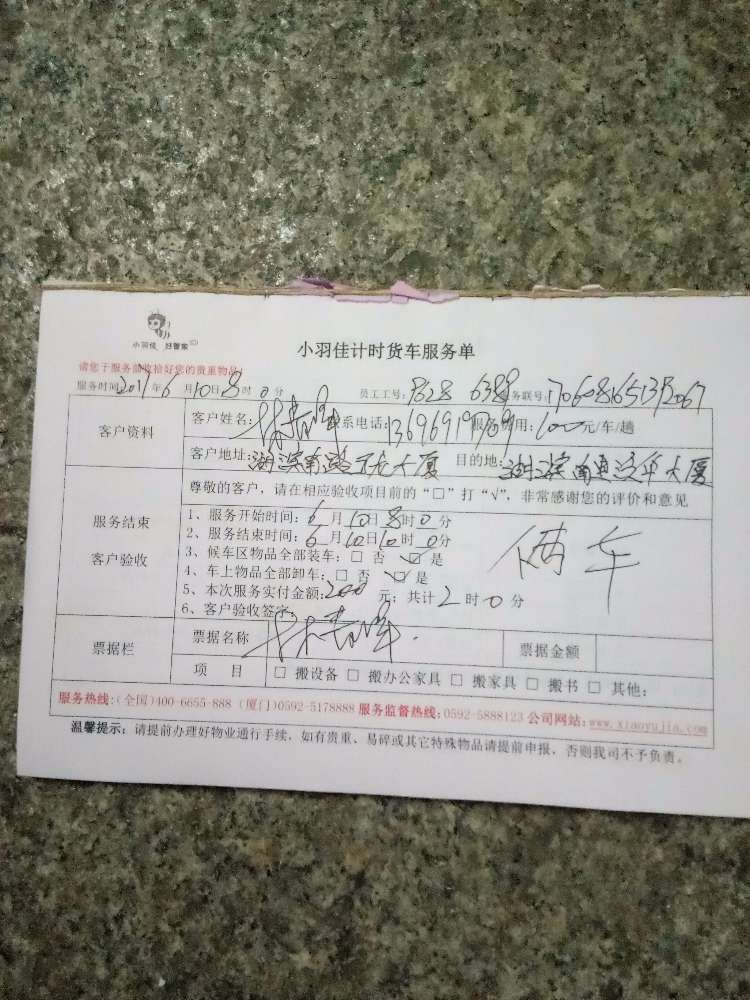 小羽佳 好管家
小羽佳计时货车服务单
请您于服务前收拾好您的贵重物品
服务时间:2017年6月10日8时0分 员工工号: 8628 6388 务联号:
客户资料 客户姓名: 联系电话: 用: 100元/车/趟
客户地址: 湖滨南路 大厦 目的地: 湖滨南 汽车大厦
尊敬的客户，请在相应验收项目前的“□”打“√”，非常感谢您的评价和意见
服务结束
客户验收
1、服务开始时间: 6月10日8时0分
2、服务结束时间: 6月10日10时0分
3、候车区物品全部装车: □ 否 ☑ 是
4、车上物品全部卸车: □ 否 ☑ 是
5、本次服务实付金额: 200元; 共计2时0分
6、客户验收签字:
俩车
票据栏 票据名称 票据金额
项 目 □ 搬设备 □ 搬办公家具 □ 搬家具 □ 搬书 □ 其他:
服务热线:(全国)400-6655-888 (厦门)0592-5178888 服务监督热线:0592-5888123 公司网站: www.xiaoyujia.com
温馨提示: 请提前办理好物业通行手续，如有贵重、易碎或其它特殊物品请提前申报，否则我司不予负责。